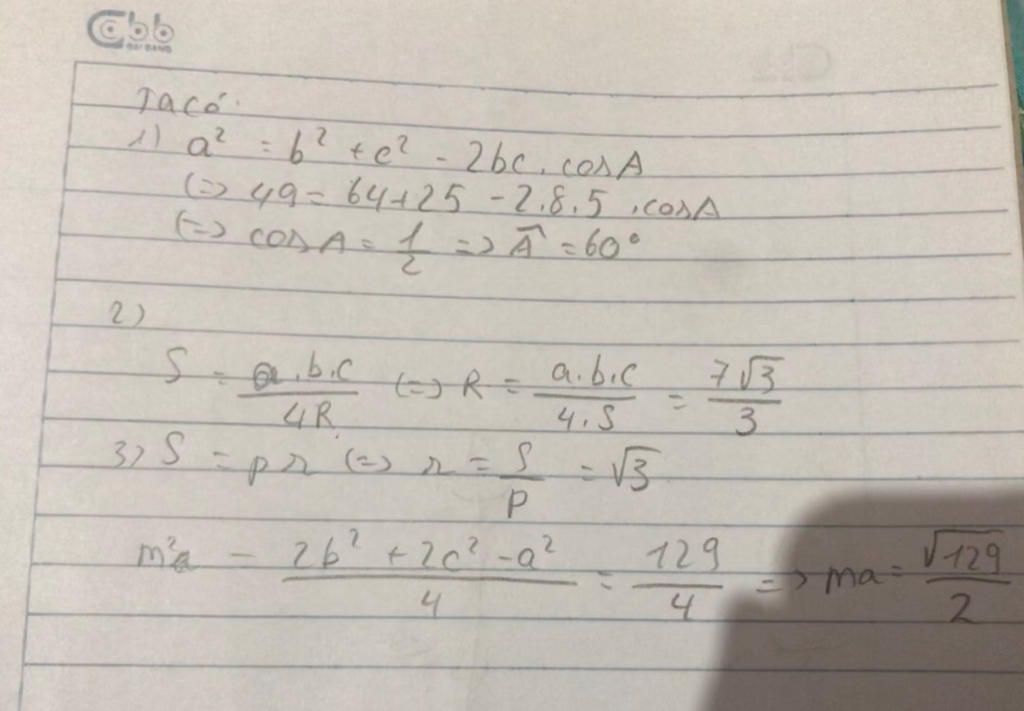 Cbb
Ta có:
1) a² = b² + c² - 2bc. cosA
(=> 49 = 64+25 - 2.8.5 .cosA
(=> cosA = 1/2 => Â = 60°
2)
S = a.b.c/4R (=> R = a.b.c/4.S = 7√3/3
3) S = pr (=> r = S/p = √3
m²a = 2b² + 2c² - a²/4 = 129/4 => ma = √129/2